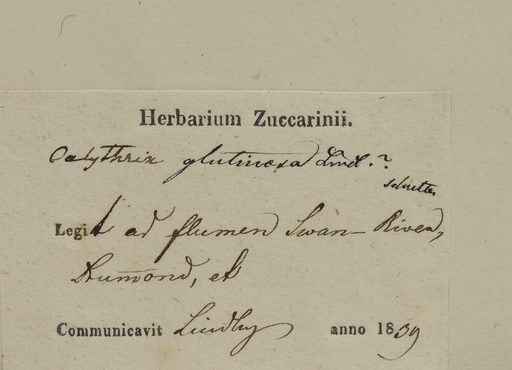 Herbarium Zuccarinii.
Calythrix glutinosa Lindl.?
Legit ad flumen Swan-River,
Drumond, et
Communicavit Lindley anno 1839